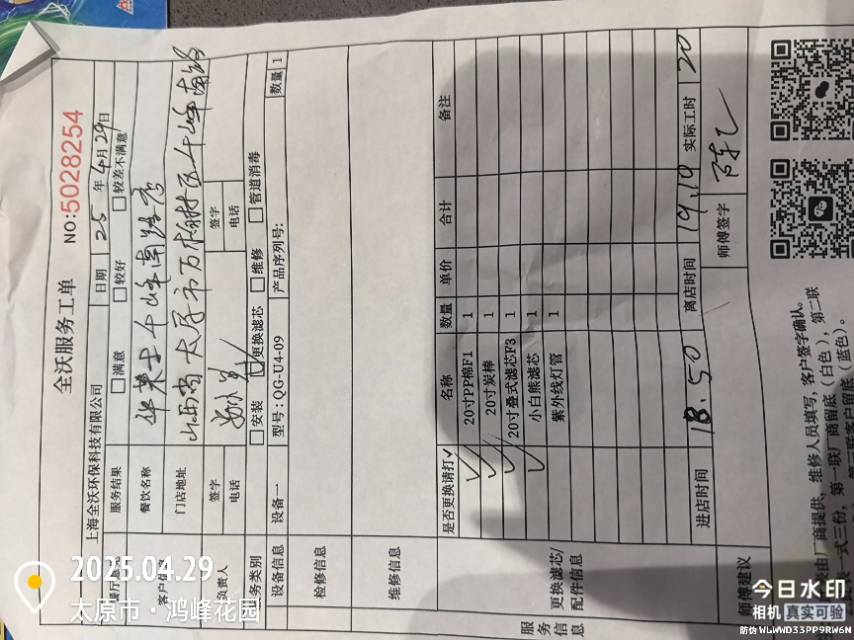 全沃服务工单
NO:5028254
上海全沃环保科技有限公司 日期 25 年 4 月 29 日
服务结果 满意 较好 较差不满意
餐饮名称 华莱士千峰南路店
门店地址 山西省太原市万柏林区千峰南路
签字 签字
电话 电话
负责人
服务类别 安装 更换滤芯 维修 管道消毒
设备信息 设备一 型号:QG-U4-09 产品序列号: 数量 1
检修信息
维修信息
是否更换请打✓ 名称 数量 单价 合计 备注
✓ 20寸PP棉F1 1
✓ 20寸炭棒 1
✓ 20寸叠式滤芯F3 1
✓ 小白熊滤芯 1
紫外线灯管 1
更换滤芯/
配件信息
服务信息
进店时间 18.50 离店时间 19.10 实际工时 20
师傅建议 师傅签字
由厂商提供，维修人员填写，客户签字确认。
一式三份，第一联厂商留底（白色），第二联
第三联客户留底（蓝色）。
2025.04.29
太原市·鸿峰花园
今日水印
相机 真实可验
防伪 WLWWD33PP9RW6N